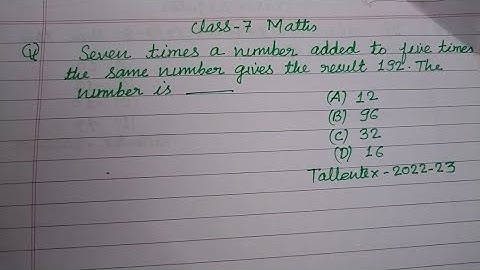 Class-7 Maths
Q) Seven times a number added to five times
the same number gives the result 192. The
number is ____
(A) 12
(B) 96
(C) 32
(D) 16
Tallentex-2022-23